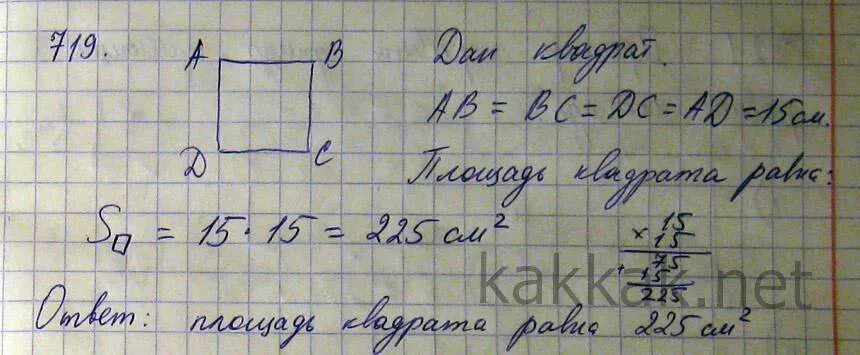 719. A B Дан квадрат.
AB = BC = DC = AD = 15 см.
D C Площадь квадрата равна:
S□ = 15 · 15 = 225 см²
× 15
15
+ 75
15
225
kakkax.net
Ответ: площадь квадрата равна 225 см²